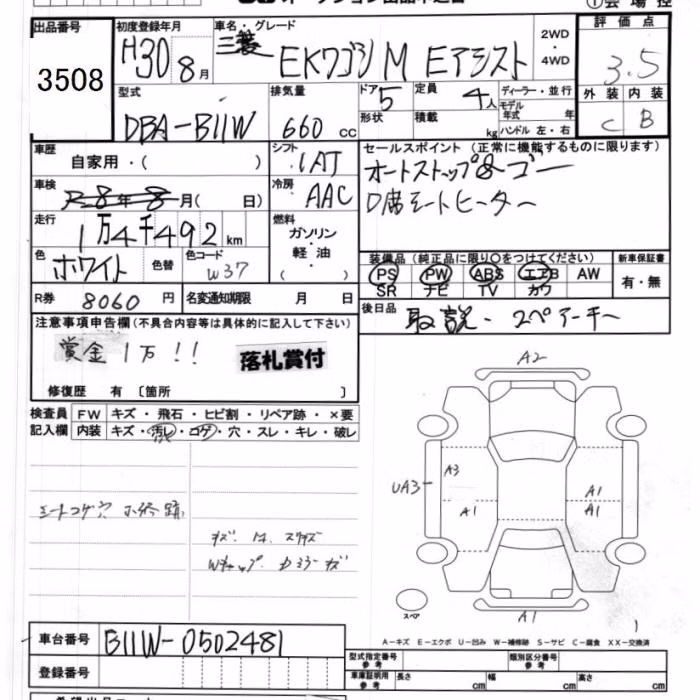 ①会場控
出品番号
3508
初度登録年月
H30 8月
車名・グレード
三菱 EKワゴン M Eアシスト
2WD
・
4WD
評価点
3.5
外装 内装
C B
型式
DBA-B11W
排気量
660 cc
ドア 5
定員 4人
形状
積載 kg
ディーラー・並行
モデル年式 年
ハンドル 左・右
車歴
自家用・( )
シフト
IAT
セールスポイント (正常に機能するものに限ります)
オートストップ&ゴー
D席シートヒーター
車検
R8年8月( 日)
冷房
AAC
走行
1万4千492km
燃料
ガソリン
・
軽油
( )
色
ホワイト
色替
色コード
W37
装備品 (純正品に限り○をつけてください)
PS PW ABS エアB AW
SR ナビ TV カワ
新車保証書
有・無
R券 8060円
名変通知期限 月 日
後日品
取説・スペアーキー
注意事項申告欄(不具合内容等は具体的に記入して下さい)
賞金1万!!
落札賞付
修復歴 有〔箇所 〕
検査員記入欄
FW キズ・飛石・ヒビ割・リペア跡・×要
内装 キズ・汚レ・コゲ・穴・スレ・キレ・破レ
シートコゲ穴 小修跡
Wキャップ
A2
UA3
A3
A1
A1
A1
A1
スペア
A-キズ E-エクボ U-凹み W-補修跡 S-サビ C-腐食 XX-交換済
車台番号 B11W-0502481
登録番号
型式指定番号 参考
類別区分番号 参考
車庫証明用 参考 長さ cm 幅 cm 高さ cm